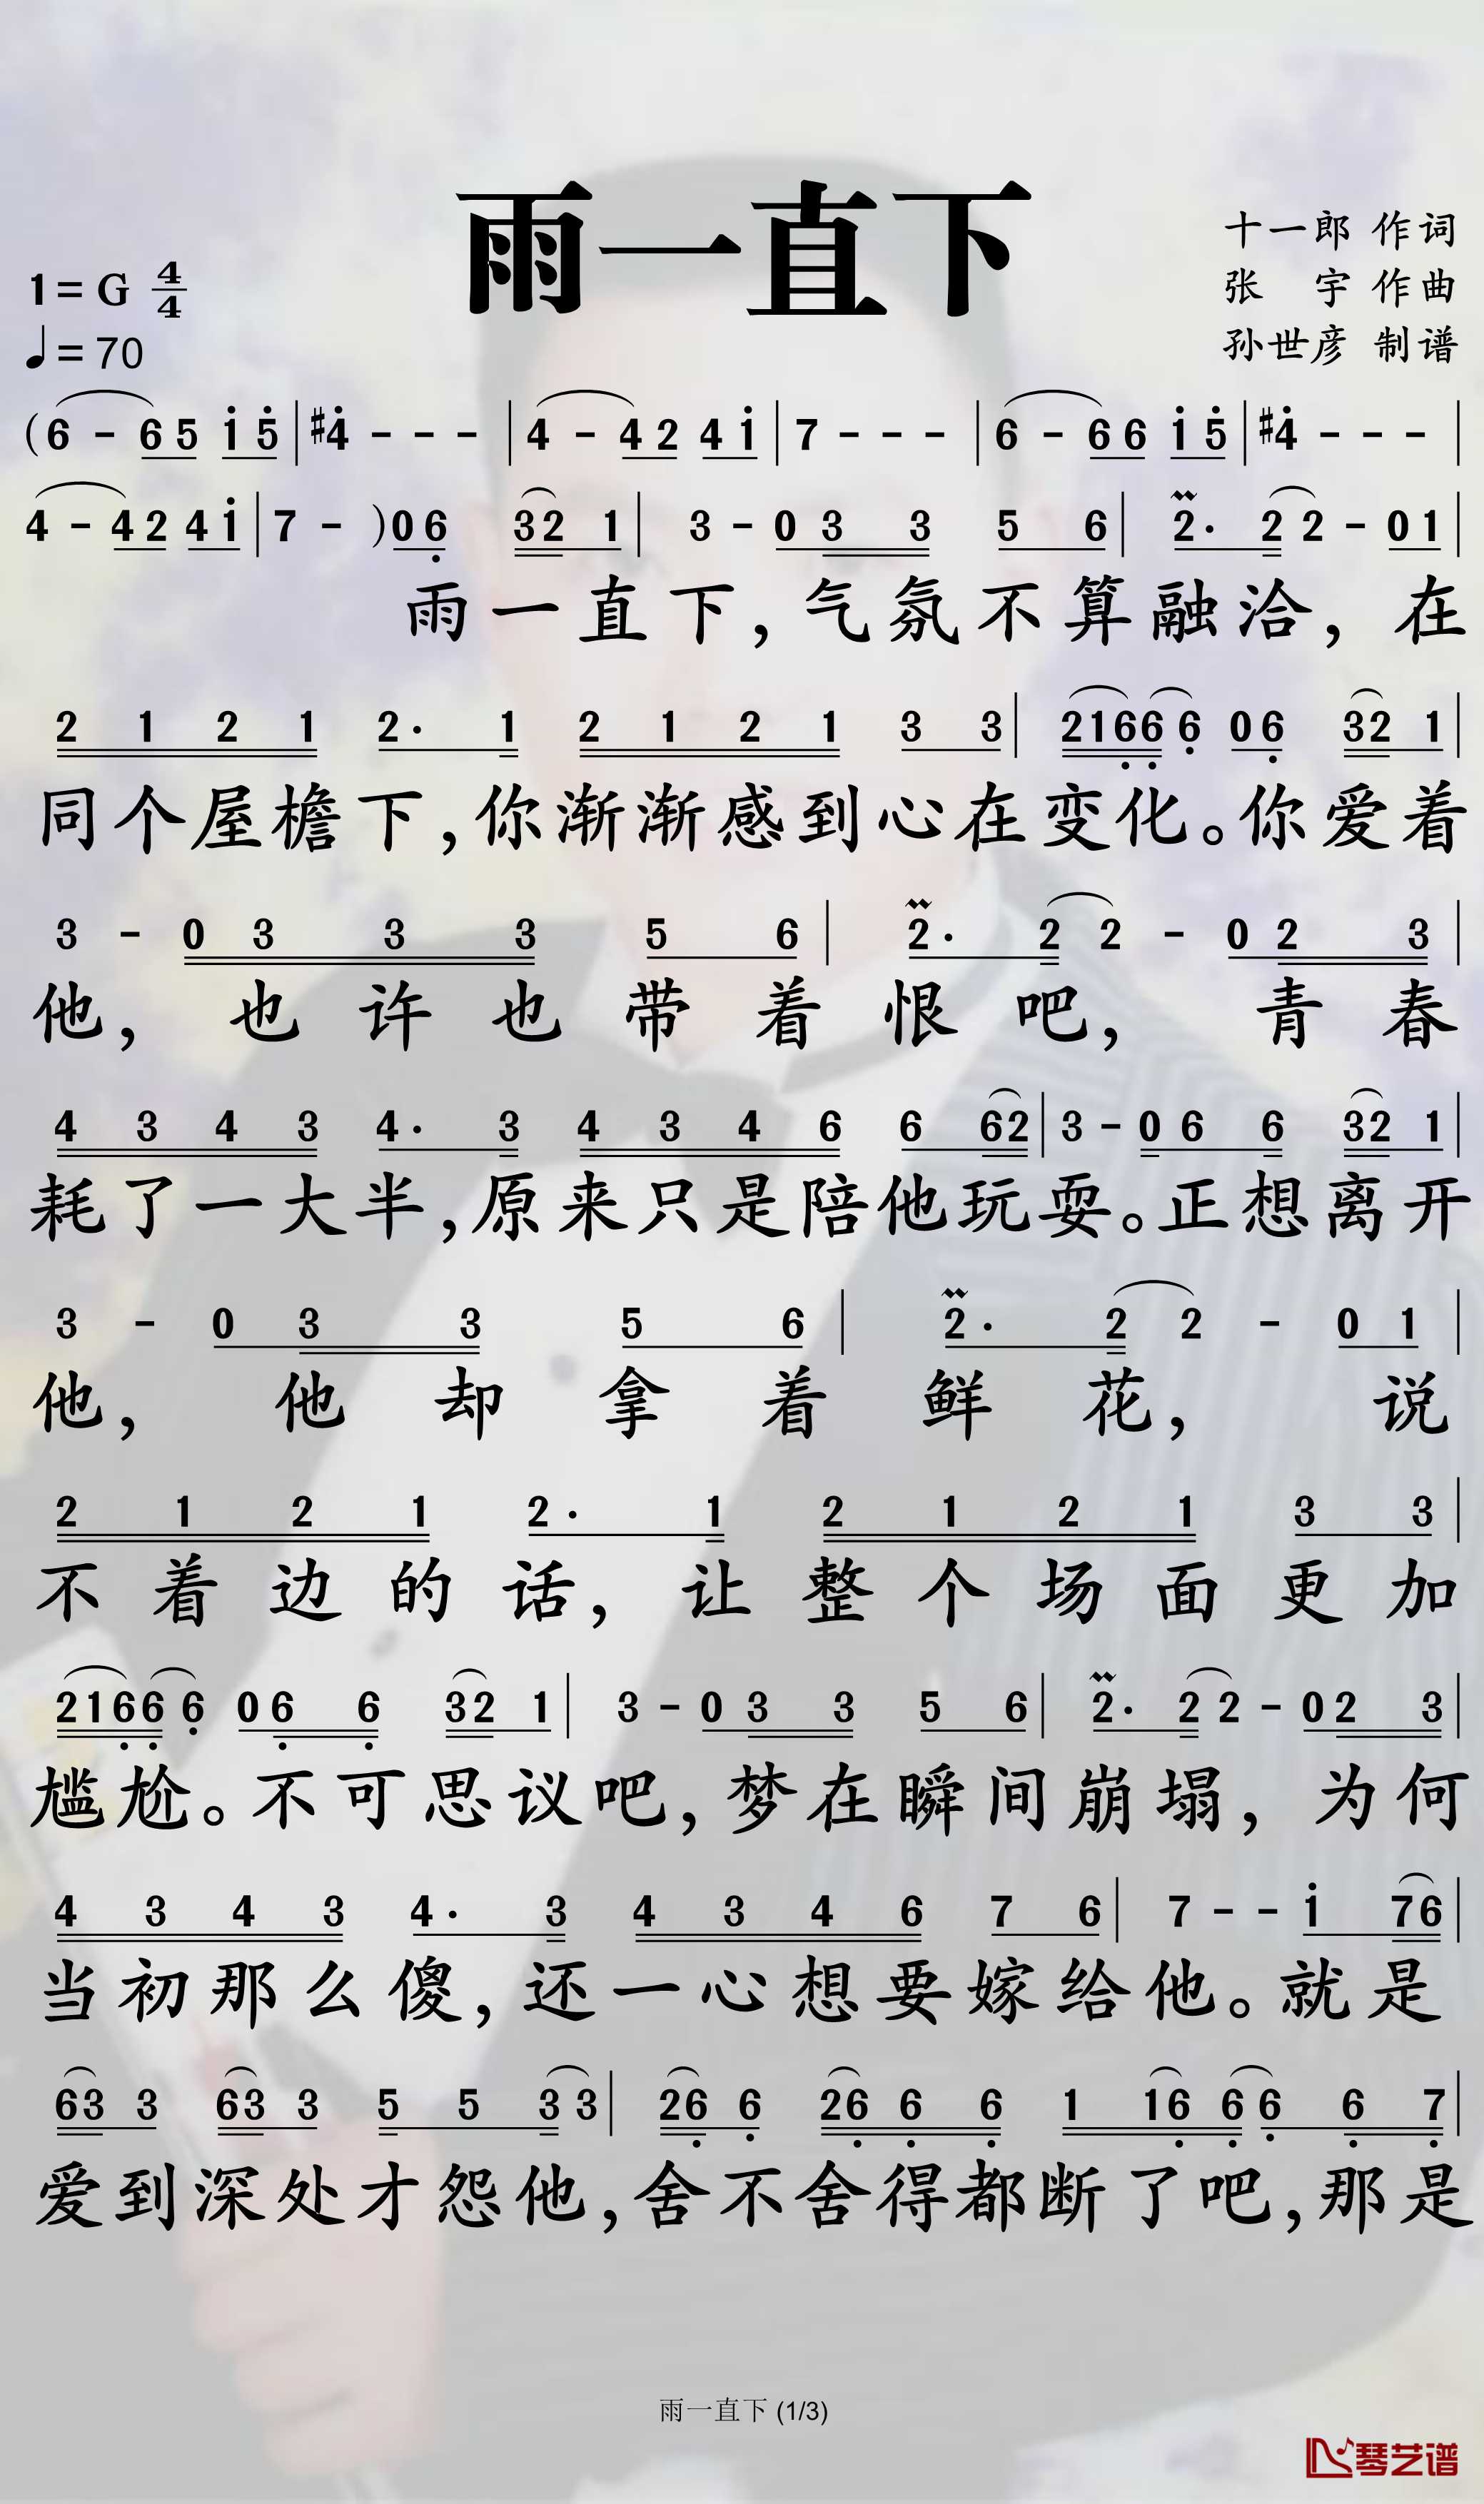 雨一直下
十一郎 作词
张 宇 作曲
孙世彦 制谱
1=G 4/4
♩=70
(6 - 6 5 1̇ 5̇ | #4̇ - - - | 4 - 4 2 4 1̇ | 7 - - - | 6 - 6 6 1̇ 5̇ | #4̇ - - - |
4 - 4 2 4 1̇ | 7 - ) 0 6̣ 3 2 1 | 3 - 0 3 3 5 6 | 2· 2 2 - 0 1 |
雨一直下，气氛不算融洽，在
2 1 2 1 2· 1 2 1 2 1 3 3 | 2 1 6̣ 6̣ 6̣ 0 6̣ 3 2 1 |
同个屋檐下，你渐渐感到心在变化。你爱着
3 - 0 3 3 3 5 6 | 2· 2 2 - 0 2 3 |
他，也许也带着恨吧，青春
4 3 4 3 4· 3 4 3 4 6 6 6 2 | 3 - 0 6 6 3 2 1 |
耗了一大半，原来只是陪他玩耍。正想离开
3 - 0 3 3 5 6 | 2· 2 2 - 0 1 |
他，他却拿着鲜花，说
2 1 2 1 2· 1 2 1 2 1 3 3 |
不着边的话，让整个场面更加
2 1 6̣ 6̣ 6̣ 0 6̣ 6̣ 3 2 1 | 3 - 0 3 3 5 6 | 2· 2 2 - 0 2 3 |
尴尬。不可思议吧，梦在瞬间崩塌，为何
4 3 4 3 4· 3 4 3 4 6 7 6 | 7 - - 1̇ 7 6 |
当初那么傻，还一心想要嫁给他。就是
6 3 3 6 3 3 5 5 3 3 | 2 6̣ 6̣ 2 6̣ 6̣ 6̣ 1 1 6̣ 6̣ 6̣ 6̣ 7̣ |
爱到深处才怨他，舍不舍得都断了吧，那是
雨一直下 (1/3)
琴艺谱